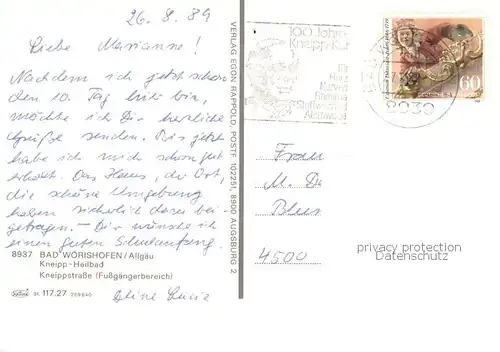 26. 8. 89
Liebe Marianne!
Nachdem ich jetzt schon
den 10. Tag hier bin,
möchte ich Dir herzliche
Grüße senden. Bis jetzt
habe ich mich schon gut
erholt. Das Haus, der Ort,
die schöne Umgebung
haben sicherlich dazu bei-
getragen. - Dir wünsche ich
einen guten Schulanfang.
8937 BAD WÖRISHOFEN/Allgäu
Kneipp-Heilbad
Kneippstraße (Fußgängerbereich)
31. 117.27
Deine
VERLAG EGON RAPPOLD, POSTF. 102251, 8900 AUGSBURG 2
100 Jahre
Kneipp-Kur
für
Herz
Nerven
Rheuma
Stoffwechsel
60
Frau
M. De
4500
privacy protection
Datenschutz